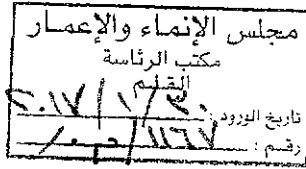 مجلس الإنماء والإعمار
مكتب الرئاسة
القلم
تاريخ الورود : ٣٠ / ١ / ٢٠١٧
رقم :